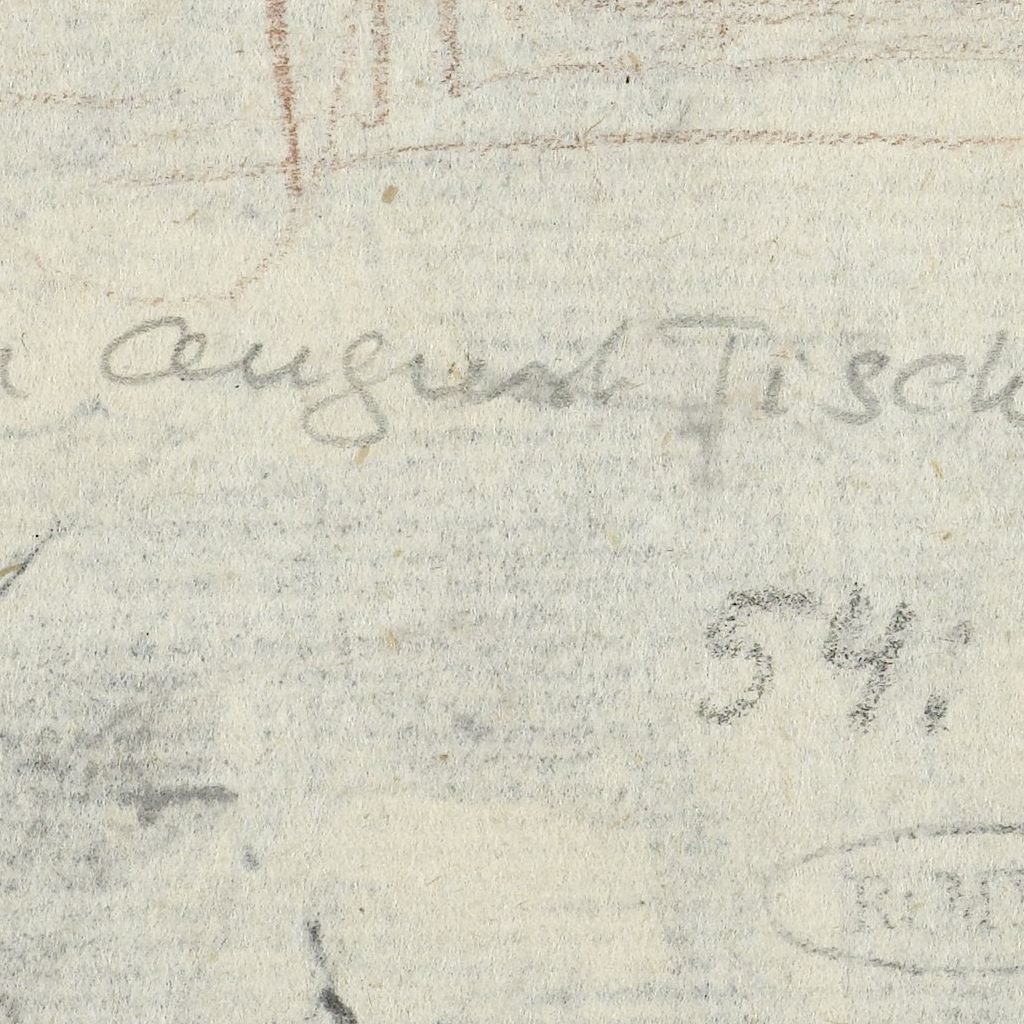 August Tisch
54: